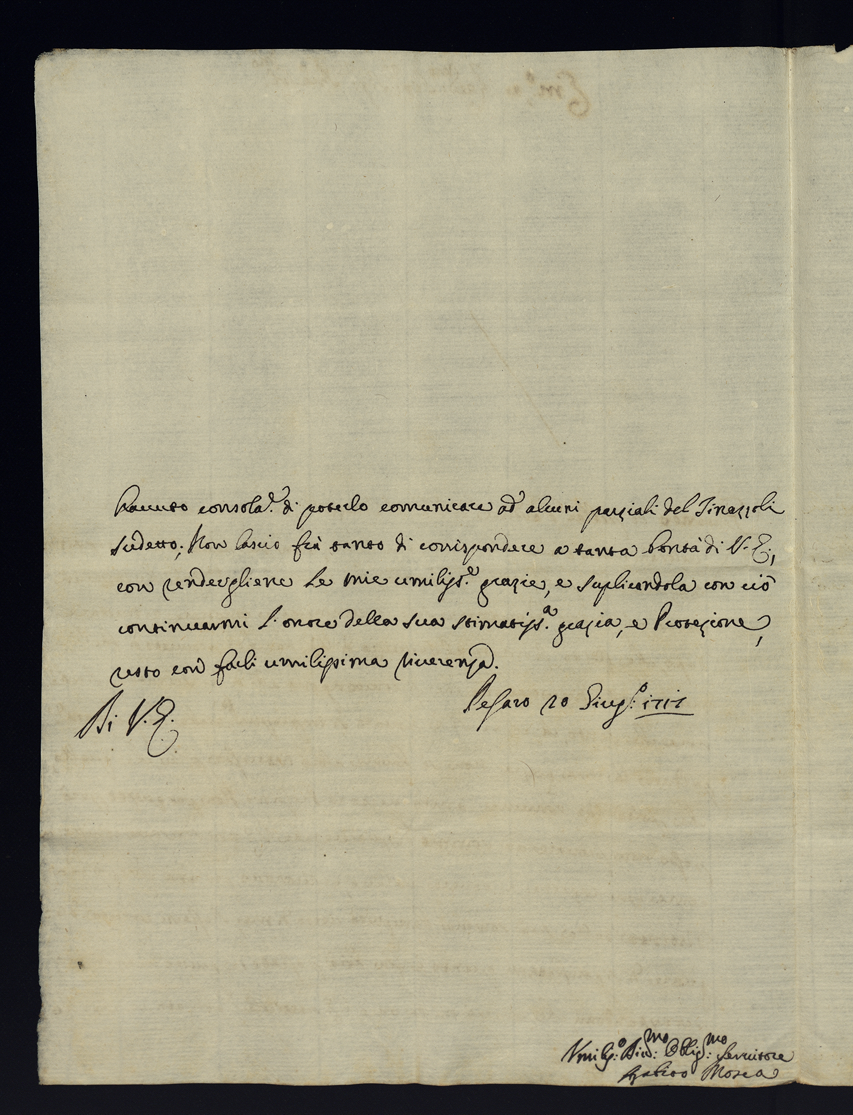 havuto consolaz.e di poterlo comunicare ad alcuni parziali del Tinazzoli
sudetto; Non lascio frà tanto di corrispondere a tanta bontà di V. E.,
con rendergliene le mie umiliss.e grazie, e suplicandola con ciò
continuarmi l'onore della sua stimatiss.a grazia, e Protezione,
resto con farli umilissima riverenza.
Di V. E.
Pesaro 20 Giug.o
Umilis.o Div.mo Oblig.mo Servitore
Mosca